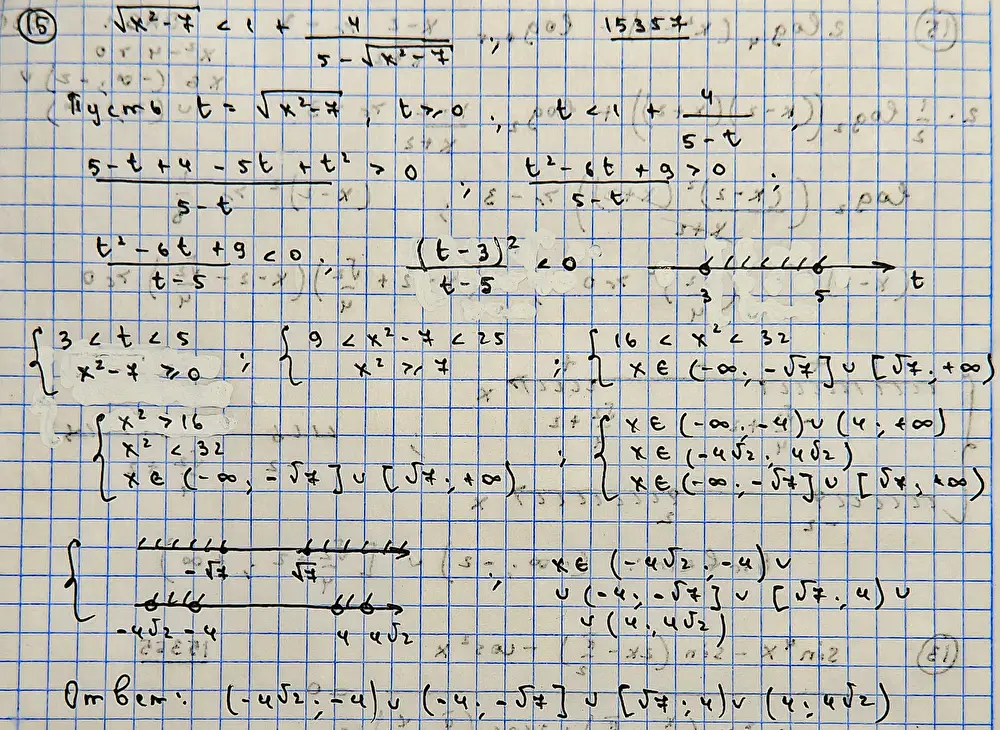 15 √x²-7 < 1 + 4/(5-√x²-7) ; 15357
Пусть t = √x²-7, t ≥ 0 ; t < 1 + 4/(5-t) ;
(5-t+4-5t+t²)/(5-t) > 0 ; (t²-6t+9)/(5-t) > 0 ;
(t²-6t+9)/(t-5) < 0 ; (t-3)²/(t-5) < 0 3 5 t
{ 3 < t < 5 ; { 9 < x²-7 < 25 ; { 16 < x² < 32
x²-7 ≥ 0 x² ≥ 7 x ∈ (-∞; -√7] ∪ [√7; +∞)
{ x² > 16 { x ∈ (-∞; -4) ∪ (4; +∞)
x² < 32 ; x ∈ (-4√2; 4√2)
x ∈ (-∞; -√7] ∪ [√7; +∞) x ∈ (-∞; -√7] ∪ [√7; +∞)
{ -√7 √7 ; x ∈ (-4√2; -4) ∪
∪ (-4; -√7] ∪ [√7; 4) ∪
-4√2 -4 4 4√2 ∪ (4; 4√2)
Ответ: (-4√2; -4) ∪ (-4; -√7] ∪ [√7; 4) ∪ (4; 4√2)